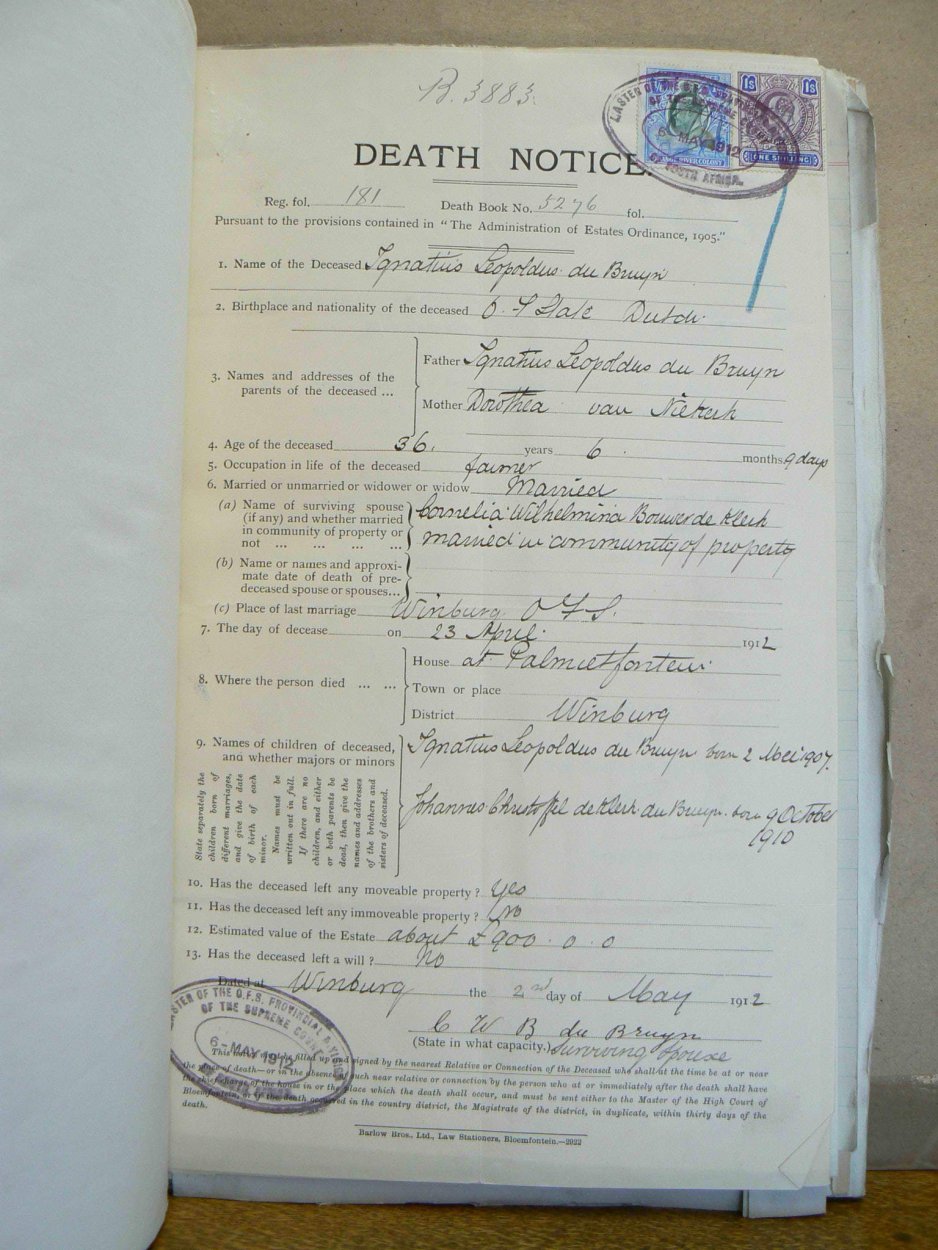 B. 3883.
1S 1S
MASTER OF THE O.F.S. PROVINCIAL
OF THE SUPREME COURT
6-MAY 1912
OF SOUTH AFRICA.
ORANGE RIVER COLONY
ONE SHILLING
DEATH NOTICE.
Reg. fol. 181 Death Book No. 5276 fol.
Pursuant to the provisions contained in "The Administration of Estates Ordinance, 1905."
1. Name of the Deceased Ignatius Leopoldus du Bruyn
2. Birthplace and nationality of the deceased O. F State Dutch.
3. Names and addresses of the parents of the deceased ...
Father Ignatius Leopoldus du Bruyn
Mother Dorothea van Niekerk
4. Age of the deceased 36. years 6 months 9 days
5. Occupation in life of the deceased farmer
6. Married or unmarried or widower or widow Married
(a) Name of surviving spouse (if any) and whether married in community of property or not ... ... ... ...
Cornelia Wilhelmina Bouwer de Klerk
married in community of property
(b) Name or names and approxi-
mate date of death of pre-
deceased spouse or spouses...
(c) Place of last marriage Winburg O F S.
7. The day of decease on 23 April. 1912
8. Where the person died ... ...
House at Palmietfontein.
Town or place
District Winburg
9. Names of children of deceased,
and whether majors or minors
State separately the
children born of
different marriages,
and give the date
of birth of each
minor.
Names must be
written out in full.
If there are no
children, and either
or both parents be
dead, then give the
names and addresses
of the brothers and
sisters of deceased.
Ignatius Leopoldus du Bruyn born 2 Mei 1907.
Johannes Christoffel de Klerk du Bruyn. born 9 October
1910
10. Has the deceased left any moveable property? Yes
11. Has the deceased left any immoveable property? No
12. Estimated value of the Estate about £900. 0. 0
13. Has the deceased left a will? No
Dated at Winburg the 2nd day of May 1912
C W B du Bruyn
(State in what capacity.) Surviving Spouse
MASTER OF THE O.F.S. PROVINCIAL DIVISION
OF THE SUPREME COURT
6-MAY 1912
This notice must be filled up and signed by the nearest Relative or Connection of the Deceased who shall at the time be at or near
the place of death—or in the absence of such near relative or connection by the person who at or immediately after the death shall have
the chief charge of the house in or the place which the death shall occur, and must be sent either to the Master of the High Court of
Bloemfontein, or if the death occurred in the country district, the Magistrate of the district, in duplicate, within thirty days of the
death.
Barlow Bros., Ltd., Law Stationers, Bloemfontein.—2922